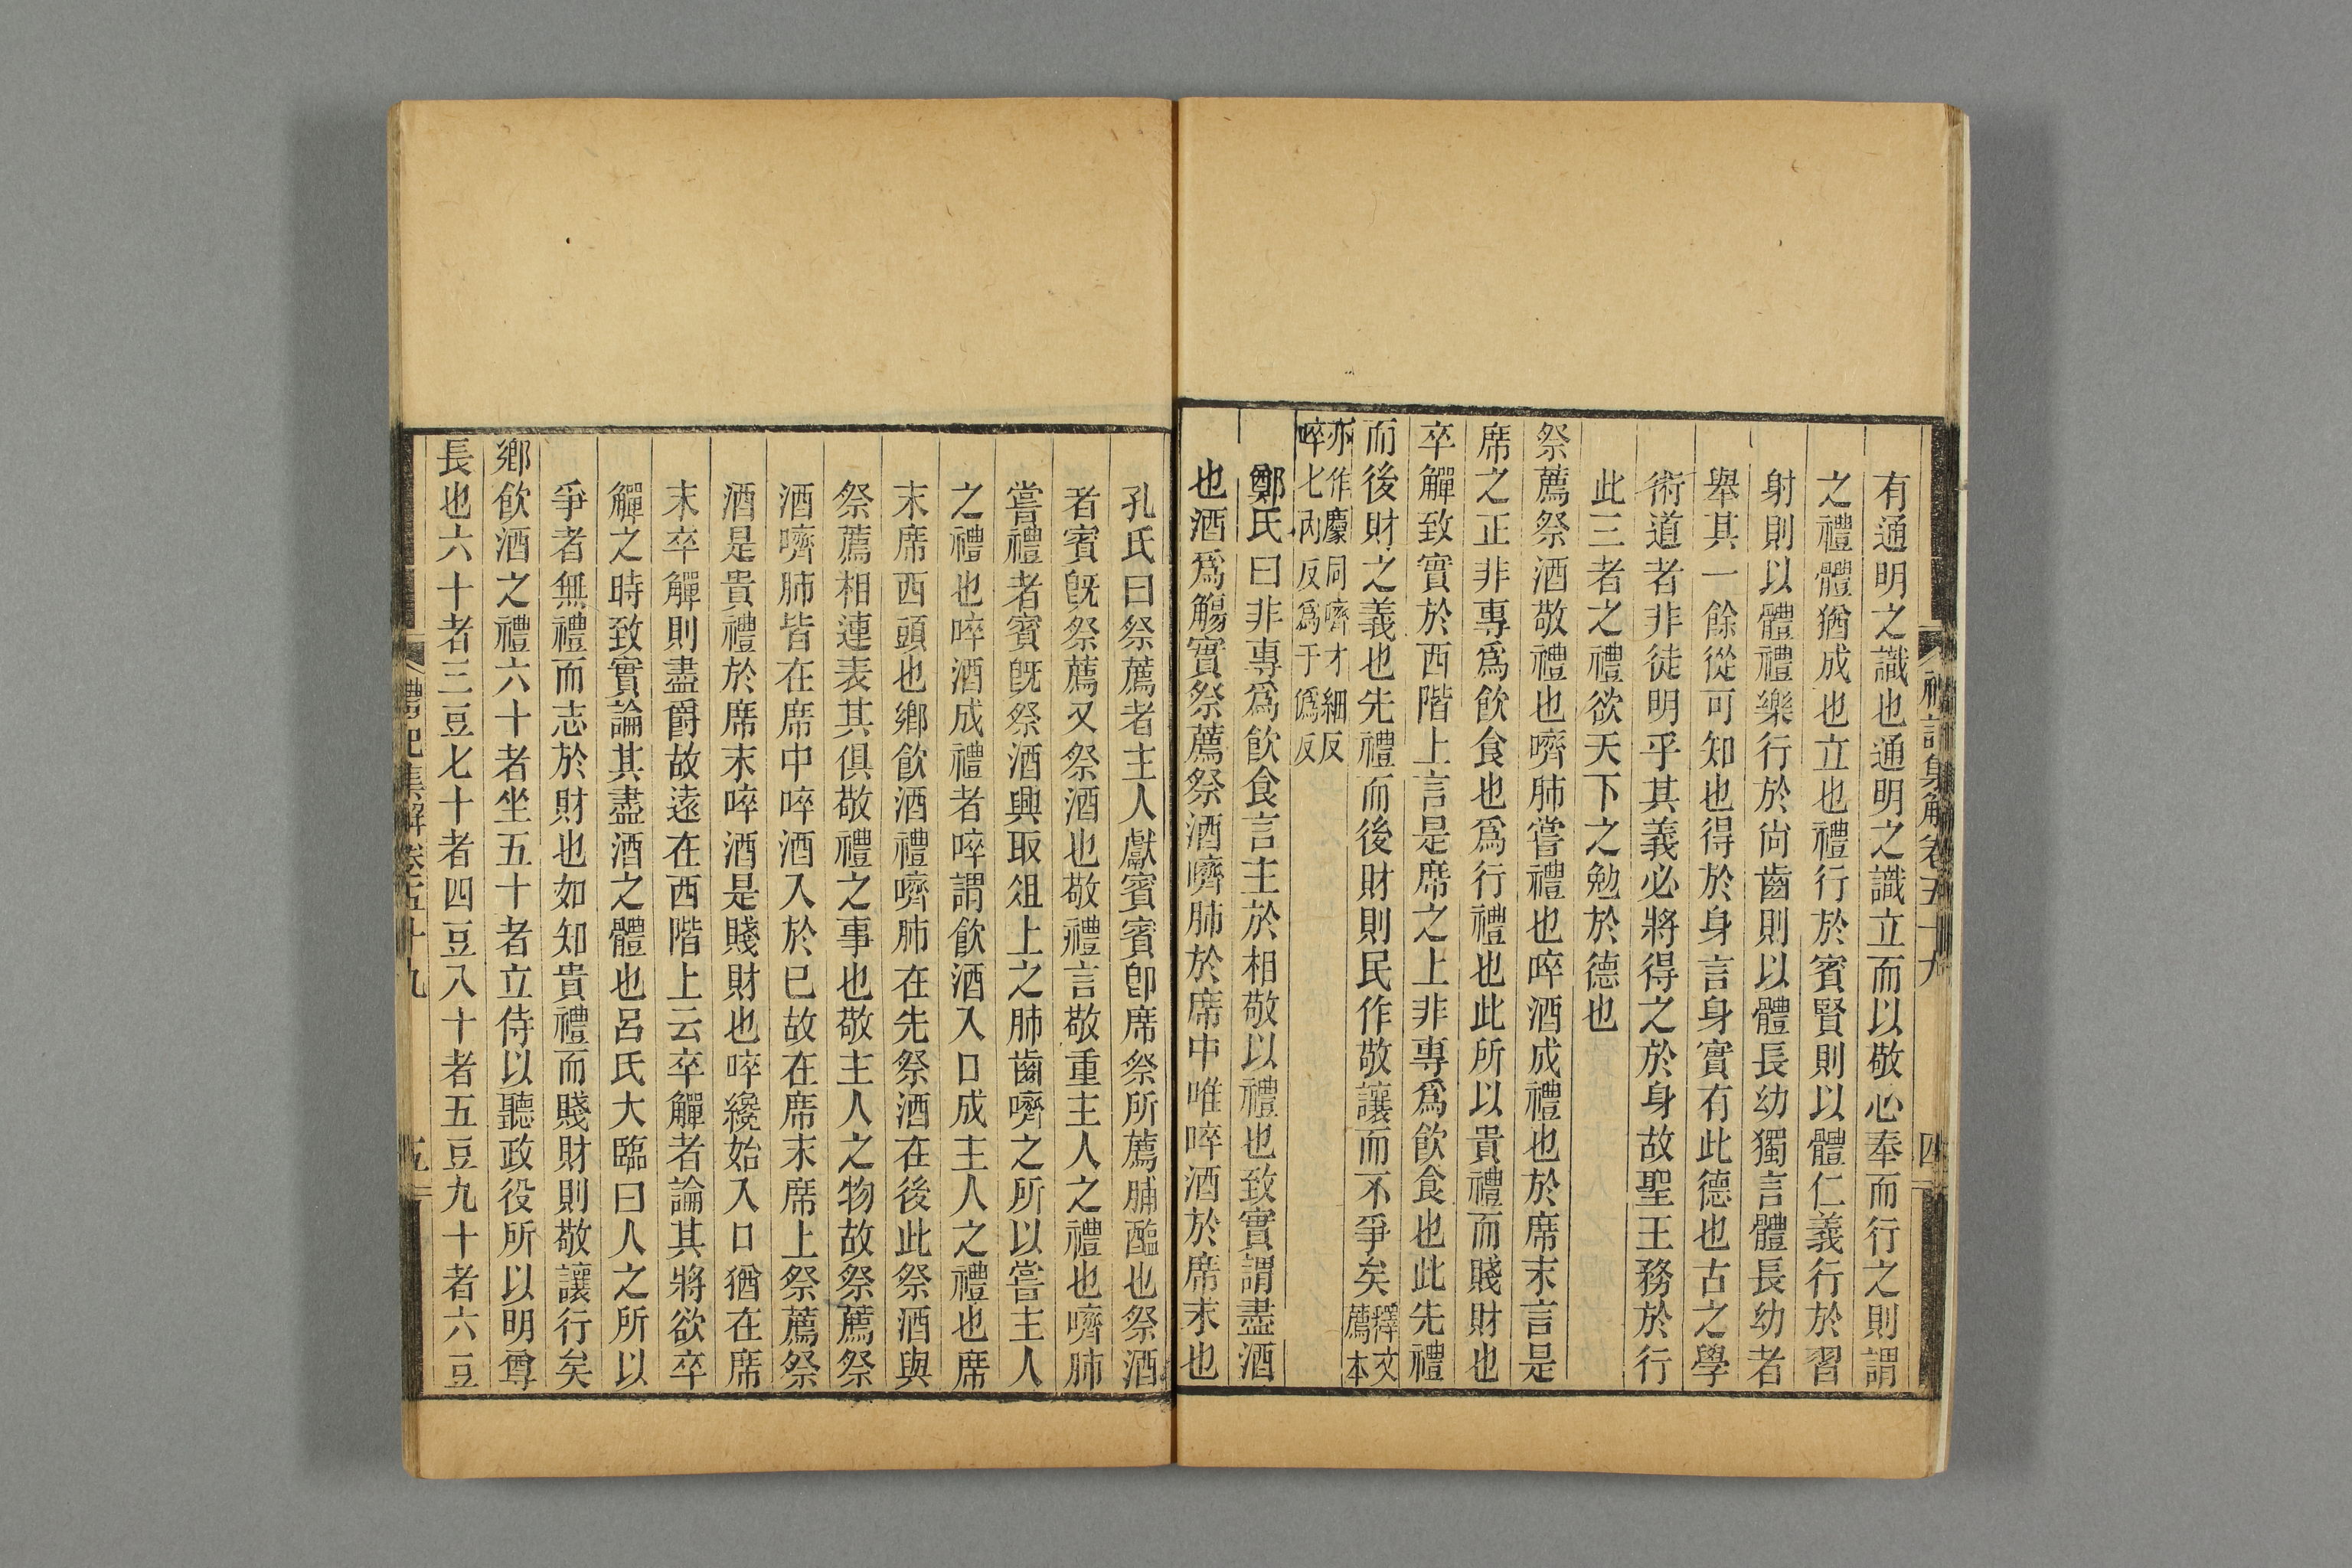 禮記集解卷五十九
四
有通明之識也通明之識立而以敬心奉而行之則謂
之禮體猶成也立也禮行於賓賢則以體仁義行於習
射則以體禮樂行於尙齒則以體長幼獨言體長幼者
舉其一餘從可知也得於身言身實有此德也古之學
術道者非徒明乎其義必將得之於身故聖王務於行
此三者之禮欲天下之勉於德也
祭薦祭酒敬禮也嚌肺嘗禮也啐酒成禮也於席末言是
席之正非專爲飮食也爲行禮也此所以貴禮而賤財也
卒觶致實於西階上言是席之上非專爲飮食也此先禮
而後財之義也先禮而後財則民作敬讓而不爭矣釋文薦本
亦作䴡同嚌才細反
啐七內反爲于僞反
鄭氏曰非專爲飮食言主於相敬以禮也致實謂盡酒
也酒爲觴實祭薦祭酒嚌肺於席中唯啐酒於席末也
孔氏曰祭薦者主人獻賓賓卽席祭所薦脯醢也祭酒
者賓旣祭薦又祭酒也敬禮言敬重主人之禮也嚌肺
嘗禮者賓旣祭酒興取俎上之肺齒嚌之所以嘗主人
之禮也啐酒成禮者啐謂飮酒入口成主人之禮也席
末席西頭也鄕飮酒禮嚌肺在先祭酒在後此祭酒與
祭薦相連表其俱敬禮之事也敬主人之物故祭薦祭
酒嚌肺皆在席中啐酒入於已故在席末席上祭薦祭
酒是貴禮於席末啐酒是賤財也啐纔始入口猶在席
末卒觶則盡爵故遠在西階上云卒觶者論其將欲卒
觶之時致實論其盡酒之體也呂氏大臨曰人之所以
爭者無禮而志於財也如知貴禮而賤財則敬讓行矣
鄕飮酒之禮六十者坐五十者立侍以聽政役所以明尊
長也六十者三豆七十者四豆八十者五豆九十者六豆
禮記集解卷五十九
五